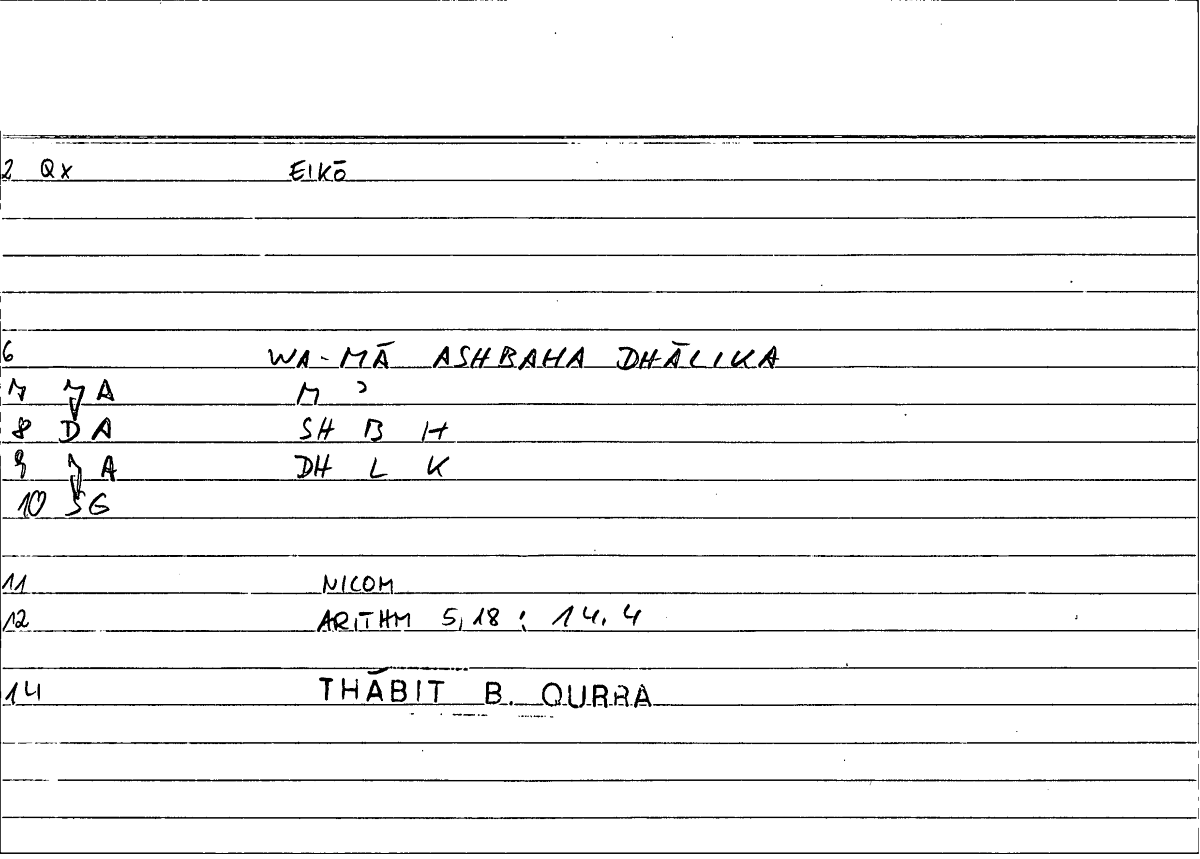 2 QX EIKŌ
6 WA-MĀ ASHBAHA DHĀLIKA
7 A M ʾ
8 D A SH B H
9 A DH L K
10 SG
11 NICOM
12 ARITHM 5,18 ; 14.4
14 THĀBIT B. QURRA